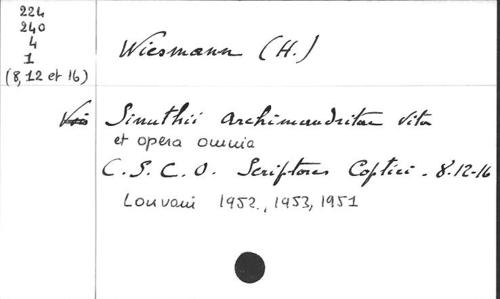 224
240
4
1
(8,12 et 16)
Wiesmann (H.)
Sinuthii archimandritae vita
et opera omnia
C.S.C.O. Scriptores Coptici. 8.12-16
Louvain 1952, 1953, 1951